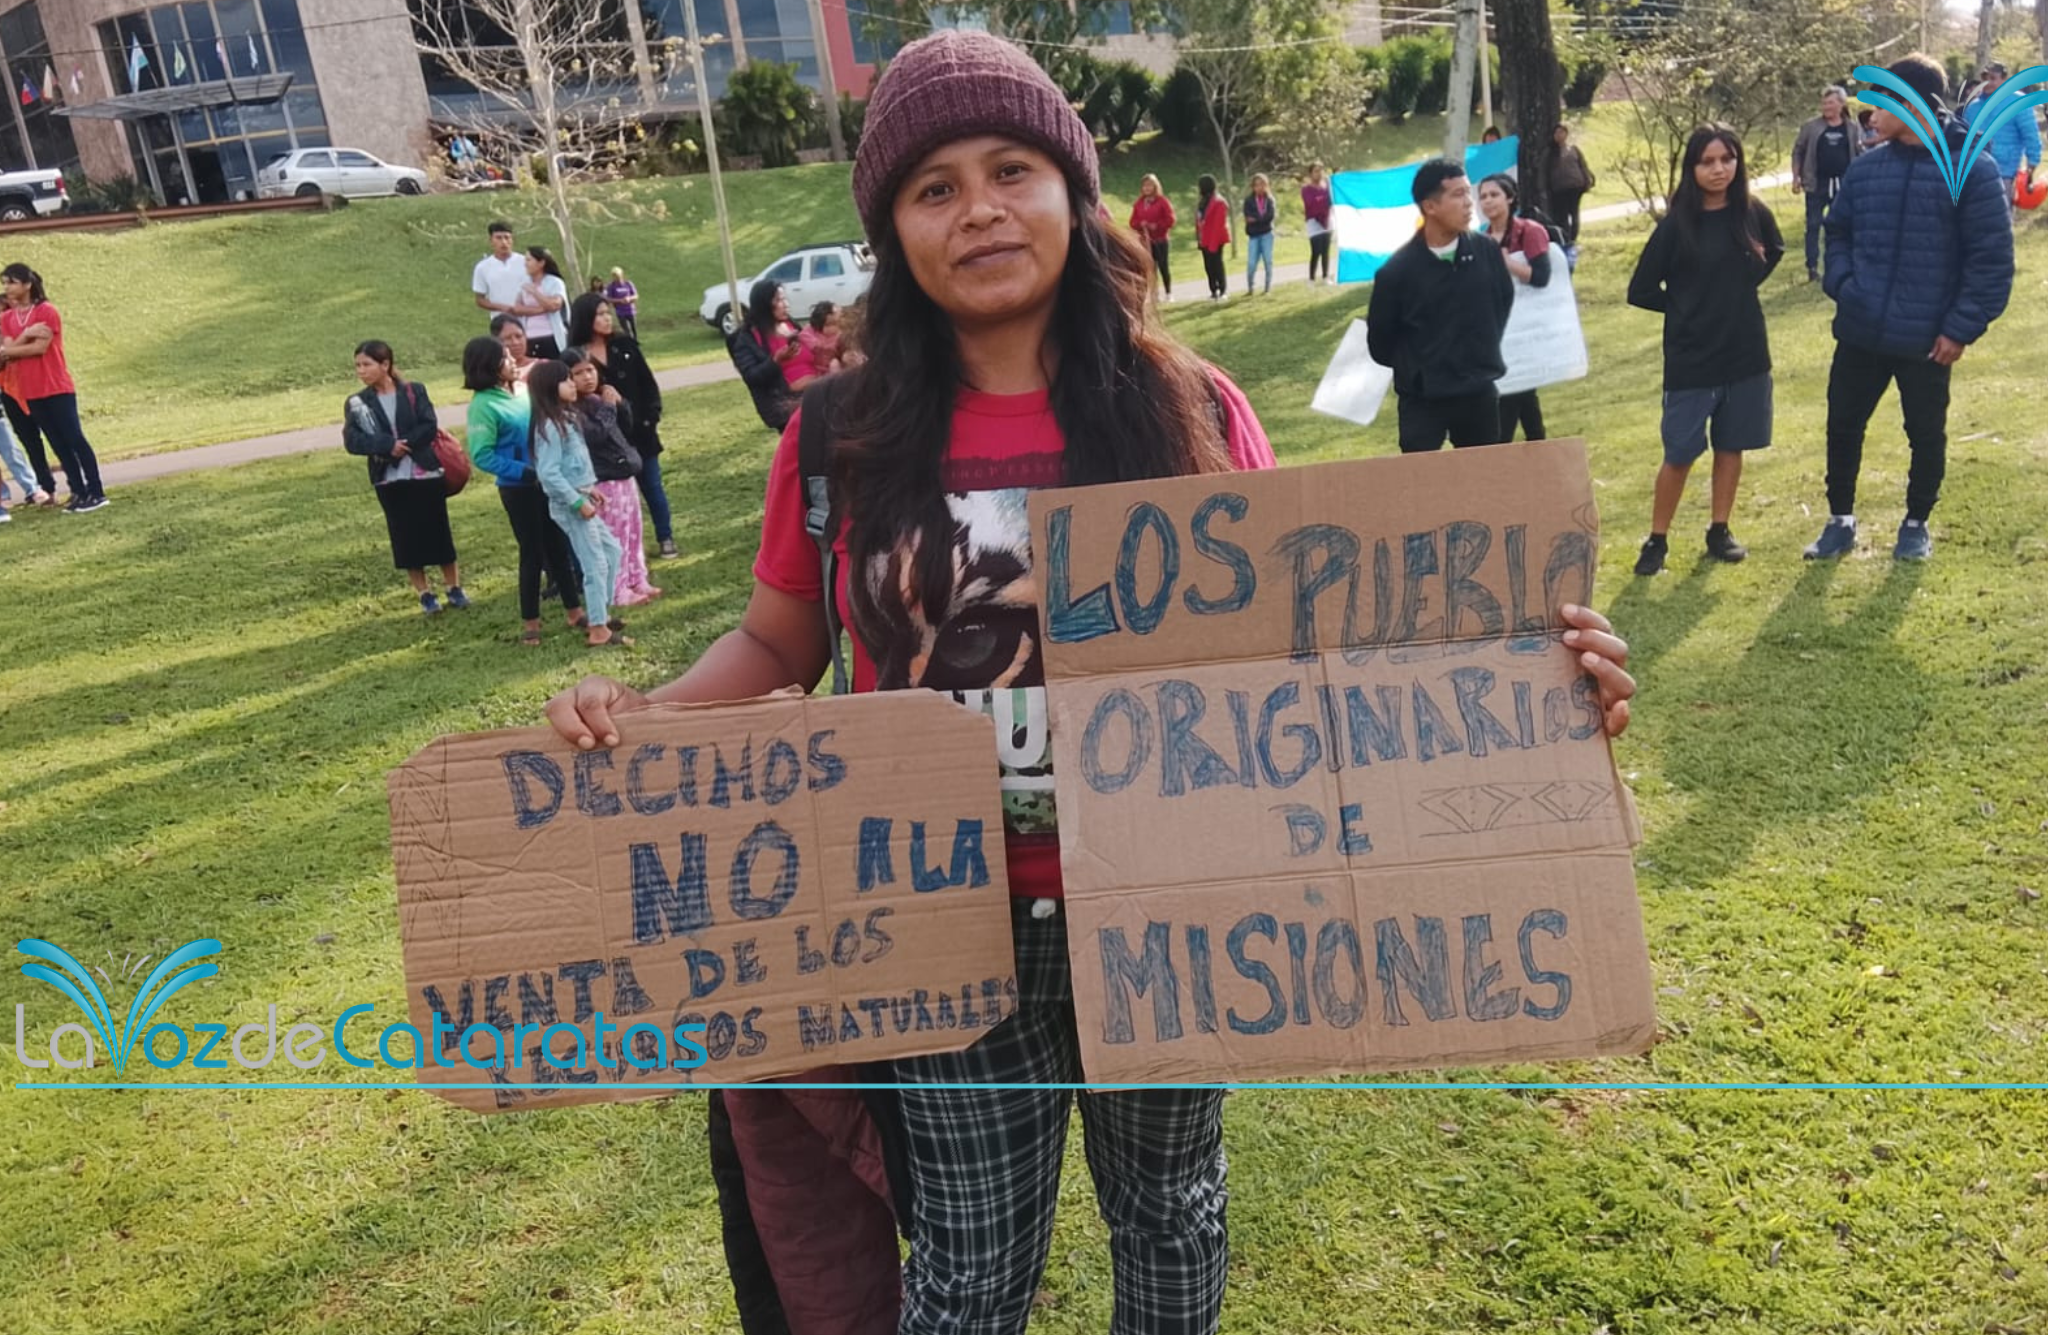 DECIMOS
NO A LA
VENTA DE LOS
RECURSOS NATURALES
LOS PUEBLO
ORIGINARIOS
DE
MISIONES
LaVozdeCataratas